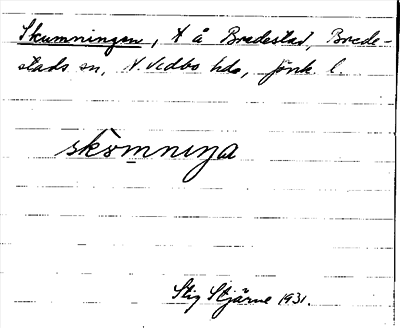 Skumningen, t å Bredestad, Brede-
stads sn, N. Vedbo hds, Jönk l.
skòmnıŋa
Stig Stjärne 1931.